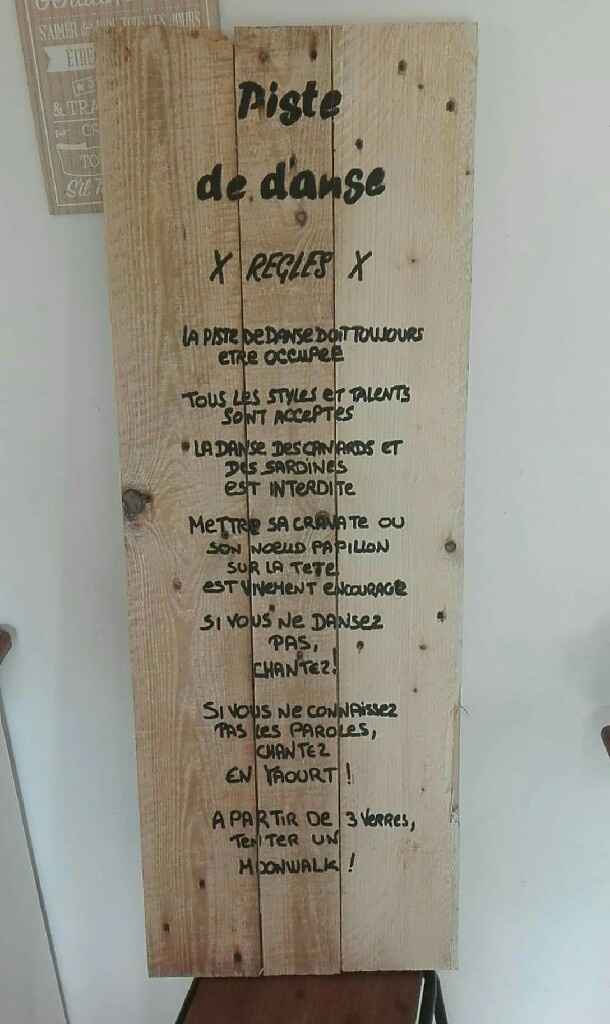 S'AIMER
TOUS LES JOURS
& TRA
Piste
de danse
X REGLES X
LA PISTE DE DANSE DOIT TOUJOURS
ETRE OCCUPEE
TOUS LES STYLES ET TALENTS
SONT ACCEPTES
LA DANSE DES CANARDS ET
DES SARDINES
EST INTERDITE
METTRE SA CRAVATE OU
SON NOEUD PAPILLON
SUR LA TETE
EST VIVEMENT ENCOURAGE
SI VOUS NE DANSEZ
PAS,
CHANTEZ!
SI VOUS NE CONNAISSEZ
PAS LES PAROLES,
CHANTEZ
EN YAOURT !
A PARTIR DE 3 VERRES,
TENTER UN
MOONWALK !